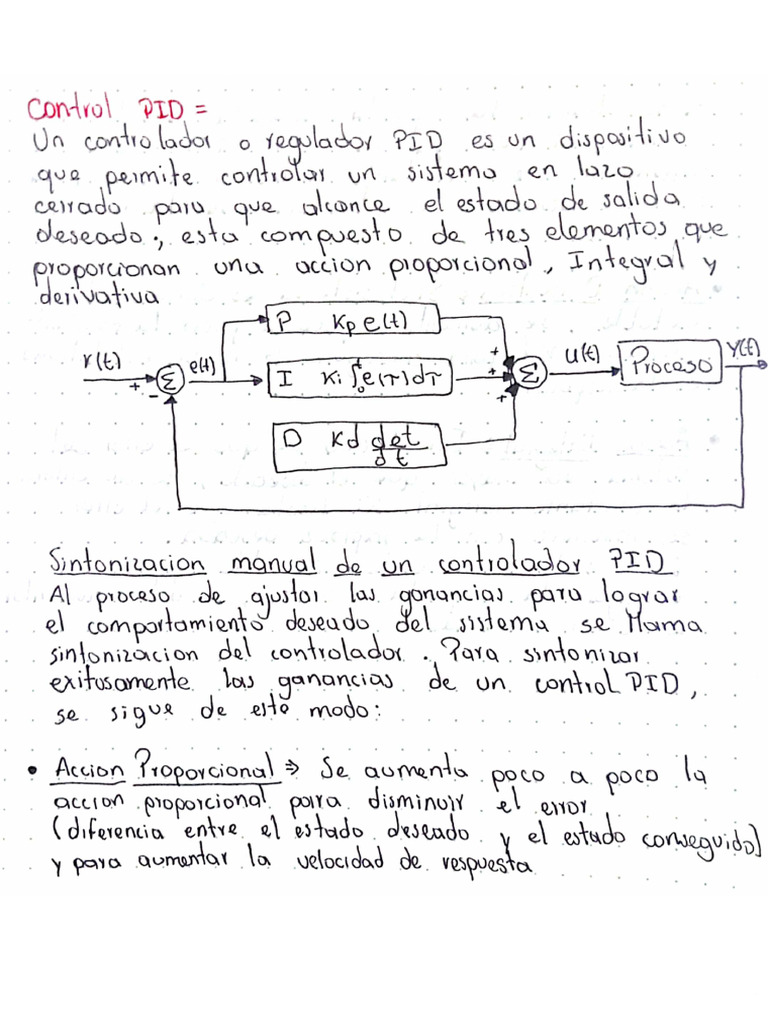 Control PID =
Un controlador o regulador PID es un dispositivo
que permite controlar un sistema en lazo
cerrado para que alcance el estado de salida
deseado, esta compuesto de tres elementos que
proporcionan una accion proporcional, Integral y
derivativa
P Kp e(t)
r(t) + - Σ e(t)
I Ki ∫₀ᵗ e(τ)dτ
+ + + Σ u(t)
Proceso
Y(t)
D Kd det/dt
Sintonizacion manual de un controlador PID
Al proceso de ajustar las ganancias para lograr
el comportamiento deseado del sistema se llama
sintonizacion del controlador. Para sintonizar
exitosamente las ganancias de un control PID,
se sigue de este modo:
• Accion Proporcional ⇒ Se aumenta poco a poco la
accion proporcional para disminuir el error
(diferencia entre el estado deseado y el estado conseguido)
y para aumentar la velocidad de respuesta